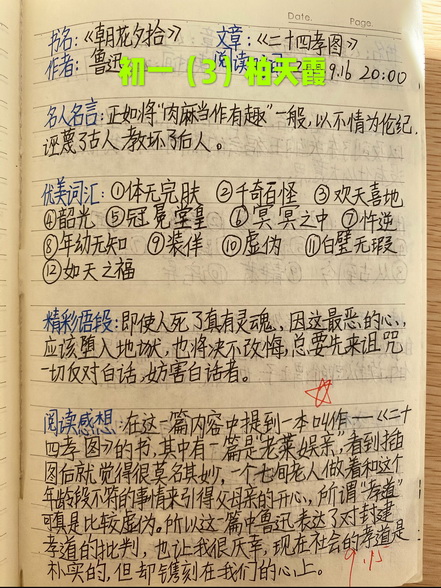 Date. Page.
书名:《朝花夕拾》 文章:《二十四孝图》
作者:鲁迅 阅读 9.16 20:00
初一（3）柏天霞
名人名言:正如将“肉麻当作有趣”一般,以不情为伦纪,
诬蔑了古人,教坏了后人。
优美词汇:①体无完肤 ②千奇百怪 ③欢天喜地
④韶光 ⑤冠冕堂皇 ⑥冥冥之中 ⑦忤逆
⑧年幼无知 ⑨装佯 ⑩虚伪 ⑪白璧无瑕
⑫如天之福
精彩语段:即使人死了真有灵魂,因这最恶的心,
应该堕入地狱,也将决不改悔,总要先来诅咒
一切反对白话,妨害白话者。
阅读感想:在这一篇内容中提到一本叫作——《二十
四孝图》的书,其中有一篇是“老莱娱亲”,看到插
图后就觉得很莫名其妙,一个七旬老人做着和这个
年龄段不符的事情来引得父母亲的开心,所谓“孝道”
可真是比较虚伪。所以这一篇中鲁迅表达了对封建
孝道的批判,也让我很庆幸,现在社会的孝道是
朴实的,但却镌刻在我们的心上。
9.15